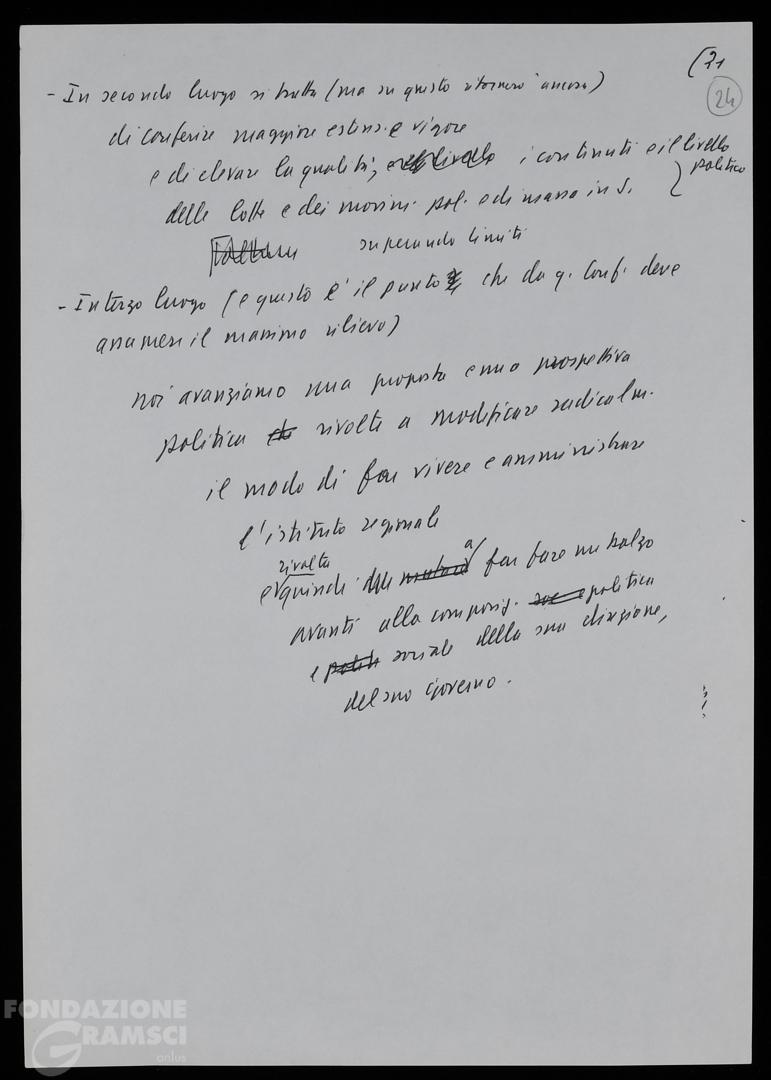 (21
24
- In secondo luogo si tratta (ma su questo ritornerò ancora)
di conferire maggiore estens. e vigore
e di elevare la qualità, e il livello i contenuti e il livello
politico
delle lotte e dei movim. pol. e di massa in S.
superando limiti
- In terzo luogo (e questo è il punto che da q. Conf. deve
assumere il massimo rilievo)
noi avanziamo una proposta e una prospettiva
politica che rivolta a modificare radicalm.
il modo di far vivere e amministrare
l'istituto regionale
rivolta
e quindi a far fare un balzo
avanti alla composiz. politica
e polit. sociale della sua direzione,
del suo Governo.
FONDAZIONE
GRAMSCI
onlus